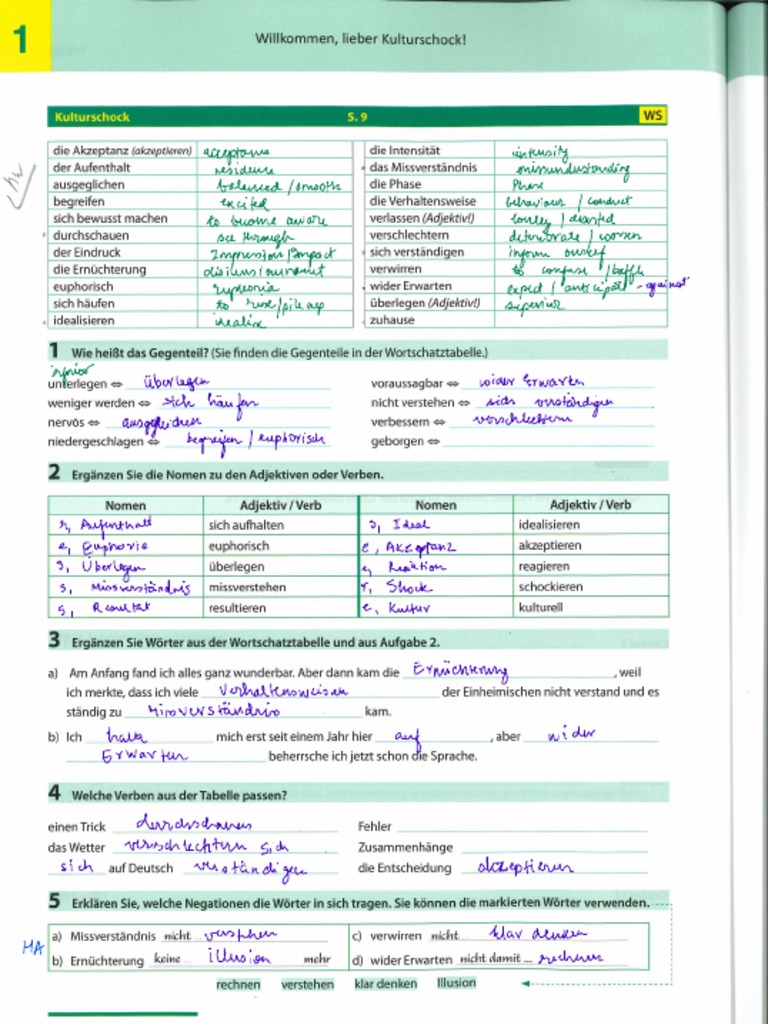 1
Willkommen, lieber Kulturschock!
Kulturschock S. 9 WS
die Akzeptanz (akzeptieren) acceptance die Intensität intensity
der Aufenthalt residence das Missverständnis missunderstanding
ausgeglichen balanced / smooth die Phase Phase
begreifen excited die Verhaltensweise behaviour / conduct
sich bewusst machen to become aware verlassen (Adjektiv!) lonley / disarted
durchschauen see through verschlechtern deteriorate / worsen
der Eindruck Impression / Impact sich verständigen inform oneself
die Ernüchterung verwirren to confuse / baffle
euphorisch euphoria wider Erwarten expect / anticipate - against
sich häufen to rise / pile up überlegen (Adjektiv!) superior
idealisieren idealize zuhause
1 Wie heißt das Gegenteil? (Sie finden die Gegenteile in der Wortschatztabelle.)
inferior
unterlegen ⇔ überlegen voraussagbar ⇔ wider Erwarten
weniger werden ⇔ sich häufen nicht verstehen ⇔ sich verständigen
nervös ⇔ ausgeglichen verbessern ⇔ verschlechtern
niedergeschlagen ⇔ begreifen / euphorisch geborgen ⇔
2 Ergänzen Sie die Nomen zu den Adjektiven oder Verben.
Nomen Adjektiv / Verb Nomen Adjektiv / Verb
r, Aufenthalt sich aufhalten s, Ideal idealisieren
e, Euphorie euphorisch e, Akzeptanz akzeptieren
s, Überlegen überlegen e, Reaktion reagieren
s, Missverständnis missverstehen r, Shock schockieren
s, Resultat resultieren e, Kultur kulturell
3 Ergänzen Sie Wörter aus der Wortschatztabelle und aus Aufgabe 2.
a) Am Anfang fand ich alles ganz wunderbar. Aber dann kam die Ernüchterung , weil
ich merkte, dass ich viele Verhaltensweisen der Einheimischen nicht verstand und es
ständig zu Missverständnis kam.
b) Ich halte mich erst seit einem Jahr hier auf , aber wider
Erwarten beherrsche ich jetzt schon die Sprache.
4 Welche Verben aus der Tabelle passen?
einen Trick durchschauen Fehler
das Wetter verschlechtern sich Zusammenhänge
sich auf Deutsch verständigen die Entscheidung akzeptieren
5 Erklären Sie, welche Negationen die Wörter in sich tragen. Sie können die markierten Wörter verwenden.
HA
a) Missverständnis nicht verstehen c) verwirren nicht klar denken
b) Ernüchterung keine Illusion mehr d) wider Erwarten nicht damit ... rechnen
rechnen verstehen klar denken Illusion